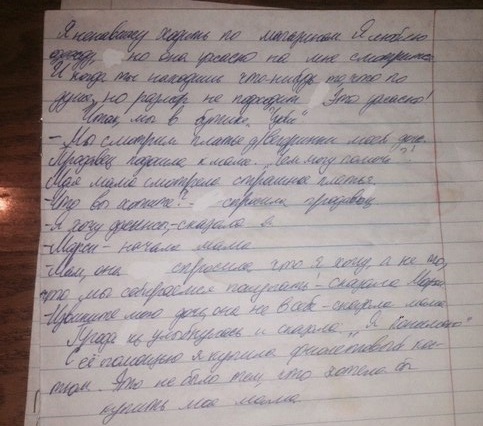 Я ненавижу ходить по магазинам. Я люблю
одежду, но она ужасно на мне смотрится.
И когда ты находишь что-нибудь то, что по
душе, но размер не подходит. Это ужасно!
Итак, мы в бутике
- Мы смотрим платье для моей
Продавец подошла к маме. Чем могу помочь?
Моя мама смотрела страшные платья.
- Что вы хотите? - спросила продавец
- Я хочу джинсы, - сказала я
- начала мама
- Мам, она спросила что я хочу, а не то,
что мы собираемся покупать - сказала
- Извините мою дочь, она не в себе - сказала мама
улыбнулась и сказала „Я
С её помощью я купила фиолетовый кос-
тюм. Это не было тем, что хотела бы
купить моя мама